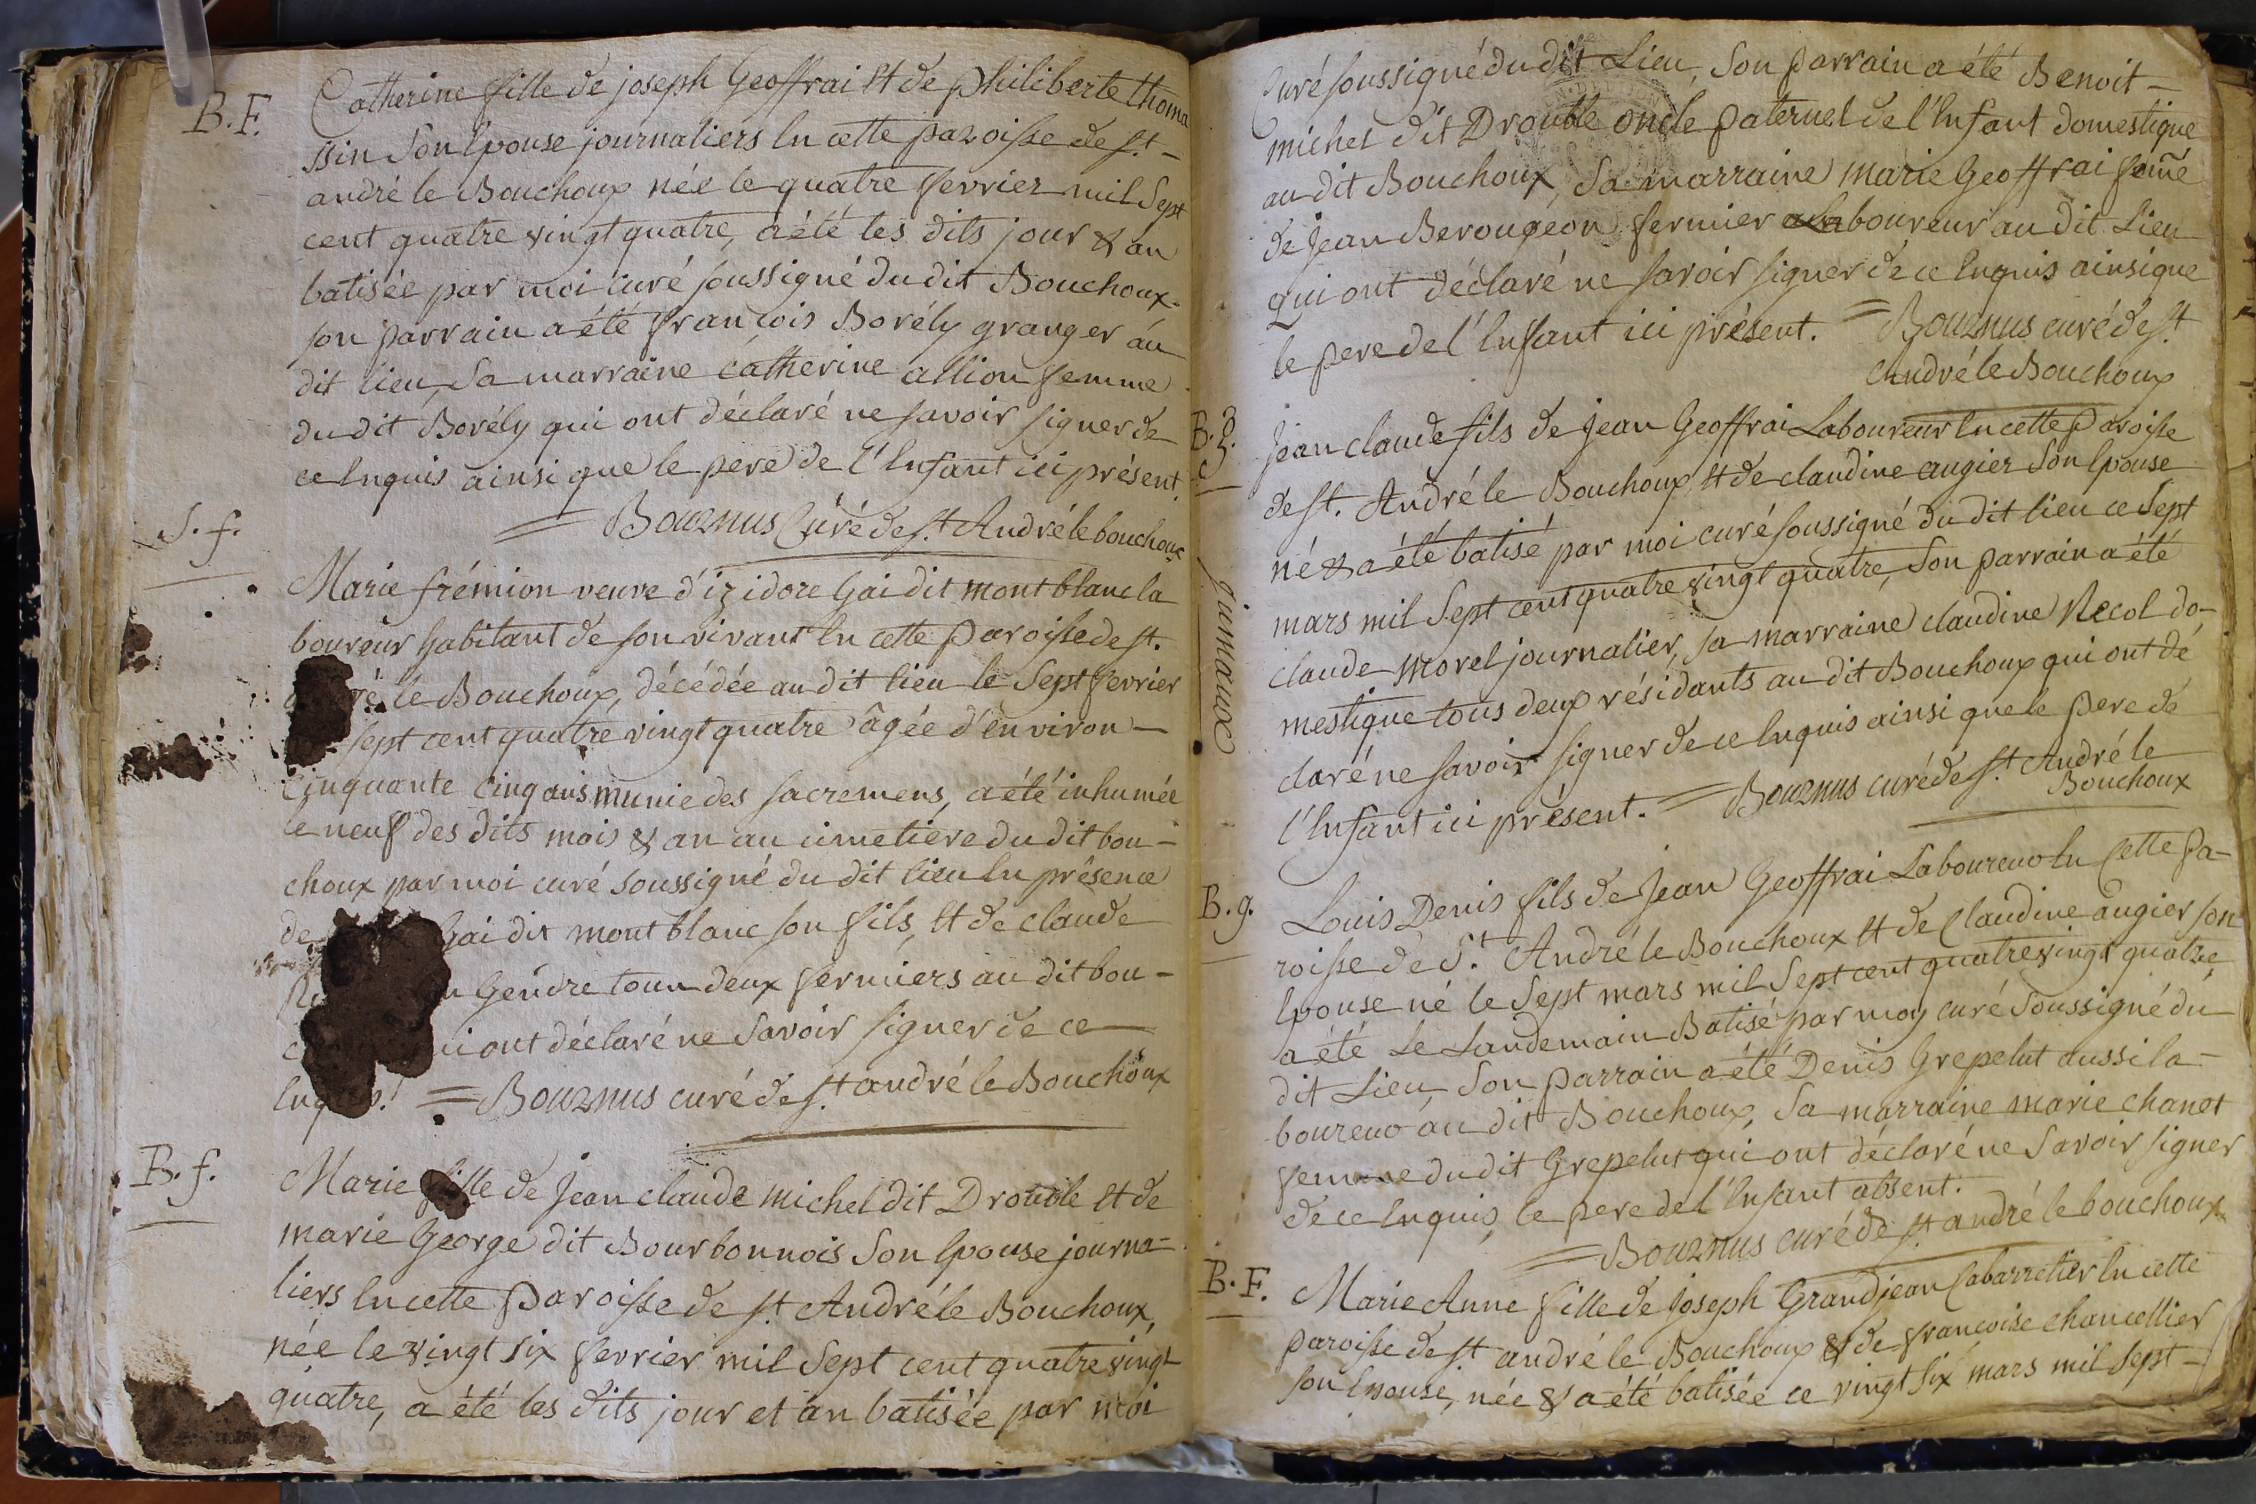 B.F.
Catherine fille de joseph Geoffrai Et de philiberte thoma
ssin son Epouse journaliers En cette paroisse de st-
andré le Bouchoux née le quatre fevrier mil sept
cent quatre vingt quatre, a été les dits jour & an
batisée par moi curé soussigné du dit Bouchoux-
son parrain a été françois Borély granger au
dit lieu, sa marraine catherine allion femme
du dit Borély qui ont déclaré ne savoir signer de
ce Enquis ainsi que le pere de l'Enfant ici présent.
= Bouznus Curé de st. André le bouchoux
S.f.
Marie frémion veuve d'izidore Gai dit mont blanc la
boureur habitant de son vivant En cette paroisse de st.
le Bouchoux, décédée au dit lieu le sept fevrier
sept cent quatre vingt quatre âgée d'environ-
cinquante cinq ans munie des sacremens, a été inhumée
le neuf des dits mois & an au cimetiere du dit bou-
choux par moi curé soussigné du dit lieu En présence
de Gai dit mont blanc son fils, Et de claude
Gendre tous deux fermiers au dit bou-
ont déclaré ne savoir signer de ce
= Bouznus curé de st. andré le Bouchoux
B.f.
Marie fille de Jean claude michel dit Drouble Et de
marie George dit Bourbonnois son Epouse journa-
liers En cette paroisse de st. André le Bouchoux,
née le vingt six fevrier mil sept cent quatre vingt
quatre, a été les dits jour et an batisée par moi
Curé soussigné du dit Lieu, son parrain a été Benoit-
michel dit Drouble oncle paternel de l'Enfant domestique
au dit Bouchoux, sa marraine marie Geoffrai feme
de Jean Berougeon fermier laboureur au dit Lieu
qui ont déclaré ne savoir signer de ce Enquis ainsi que
le pere de l'Enfant ici présent. = Bouznus curé de st.
André le Bouchoux
B.g.
Jean claude fils de Jean Geoffrai Laboureur En cette paroisse
de st. André le Bouchoux Et de claudine augier son Epouse
né & a été batisé par moi curé soussigné du dit lieu ce sept
mars mil sept cent quatre vingt quatre, son parrain a été
claude morel journalier, sa marraine claudine Recol do-
mestique tous deux résidants au dit Bouchoux qui ont dé
claré ne savoir signer de ce Enquis ainsi que le pere de
l'Enfant ici présent. = Bouznus curé de st. André le
Bouchoux
jumaux
B.g.
Louis Denis fils de Jean Geoffrai Laboureur En Cette pa-
roisse de St. André le Bouchoux Et de Claudine augier son
Epouse né le sept mars mil sept cent quatre vingt quatre,
a été Le Landemain Batisé par moy curé soussigné du
dit Lieu, son parrain a été Denis Grepelut aussi la-
boureur au dit Bouchoux, sa marraine marie chanet
femme du dit Grepelut qui ont déclaré ne savoir signer
de ce Enquis, le pere de l'Enfant absent.
= Bouznus curé de st. andré le bouchoux
B.F.
Marie Anne fille de Joseph Grandjean Cabarretier En cette
paroisse de st. andré le Bouchoux & de françoise chancellier
son Epouse, née & a été batisée ce vingt six mars mil sept-